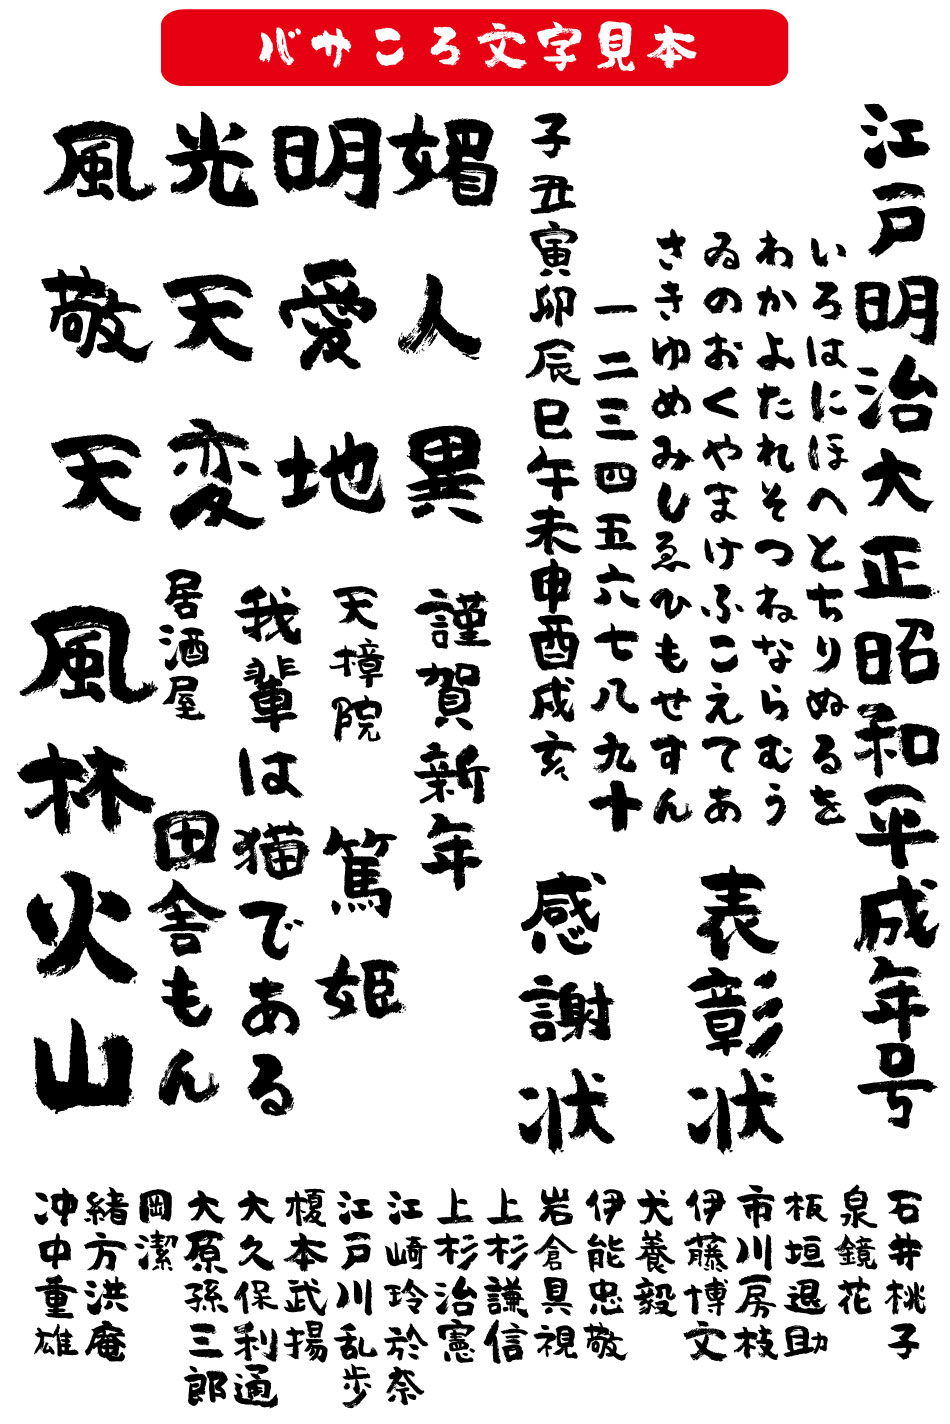 バサころ文字見本
江戸明治大正昭和平成年号
いろはにほへとちりぬるを
わかよたれそつねならむう
ゐのおくやまけふこえてあ
さきゆめみしゑひもせすん
表彰状
一二三四五六七八九十
子丑寅卯辰巳午未申酉戌亥
感謝状
風光明媚
敬天愛人
天変地異
謹賀新年
天樟院
篤姫
我輩は猫である
居酒屋
田舎もん
風林火山
石井桃子
泉鏡花
板垣退助
市川房枝
伊藤博文
犬養毅
伊能忠敬
岩倉具視
上杉謙信
上杉治憲
江崎玲於奈
江戸川乱歩
榎本武揚
大久保利通
大原孫三郎
岡潔
緒方洪庵
冲中重雄